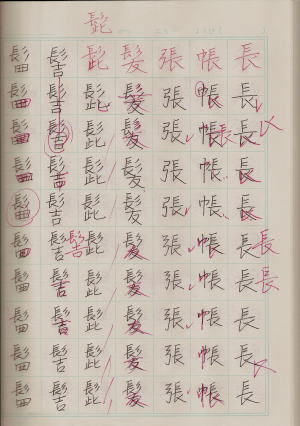 髭
長長長長長長長長長長
帳帳帳帳帳帳帳帳帳帳
張張張張張張張張張張
髪髪髪髪髪髪髪髪髪髪
髭髭髭髭髭髭髭髭髭髭
髻髻髻髻髻髻髻髻髻髻
髷髷髷髷髷髷髷髷髷髷
長
長
長
髻